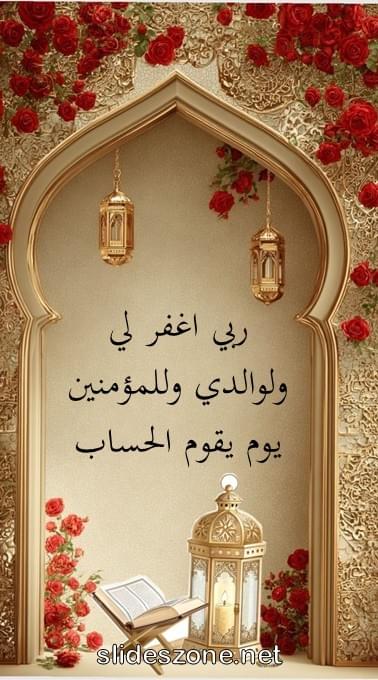 ربي اغفر لي
ولوالدي وللمؤمنين
يوم يقوم الحساب
slideszone.net